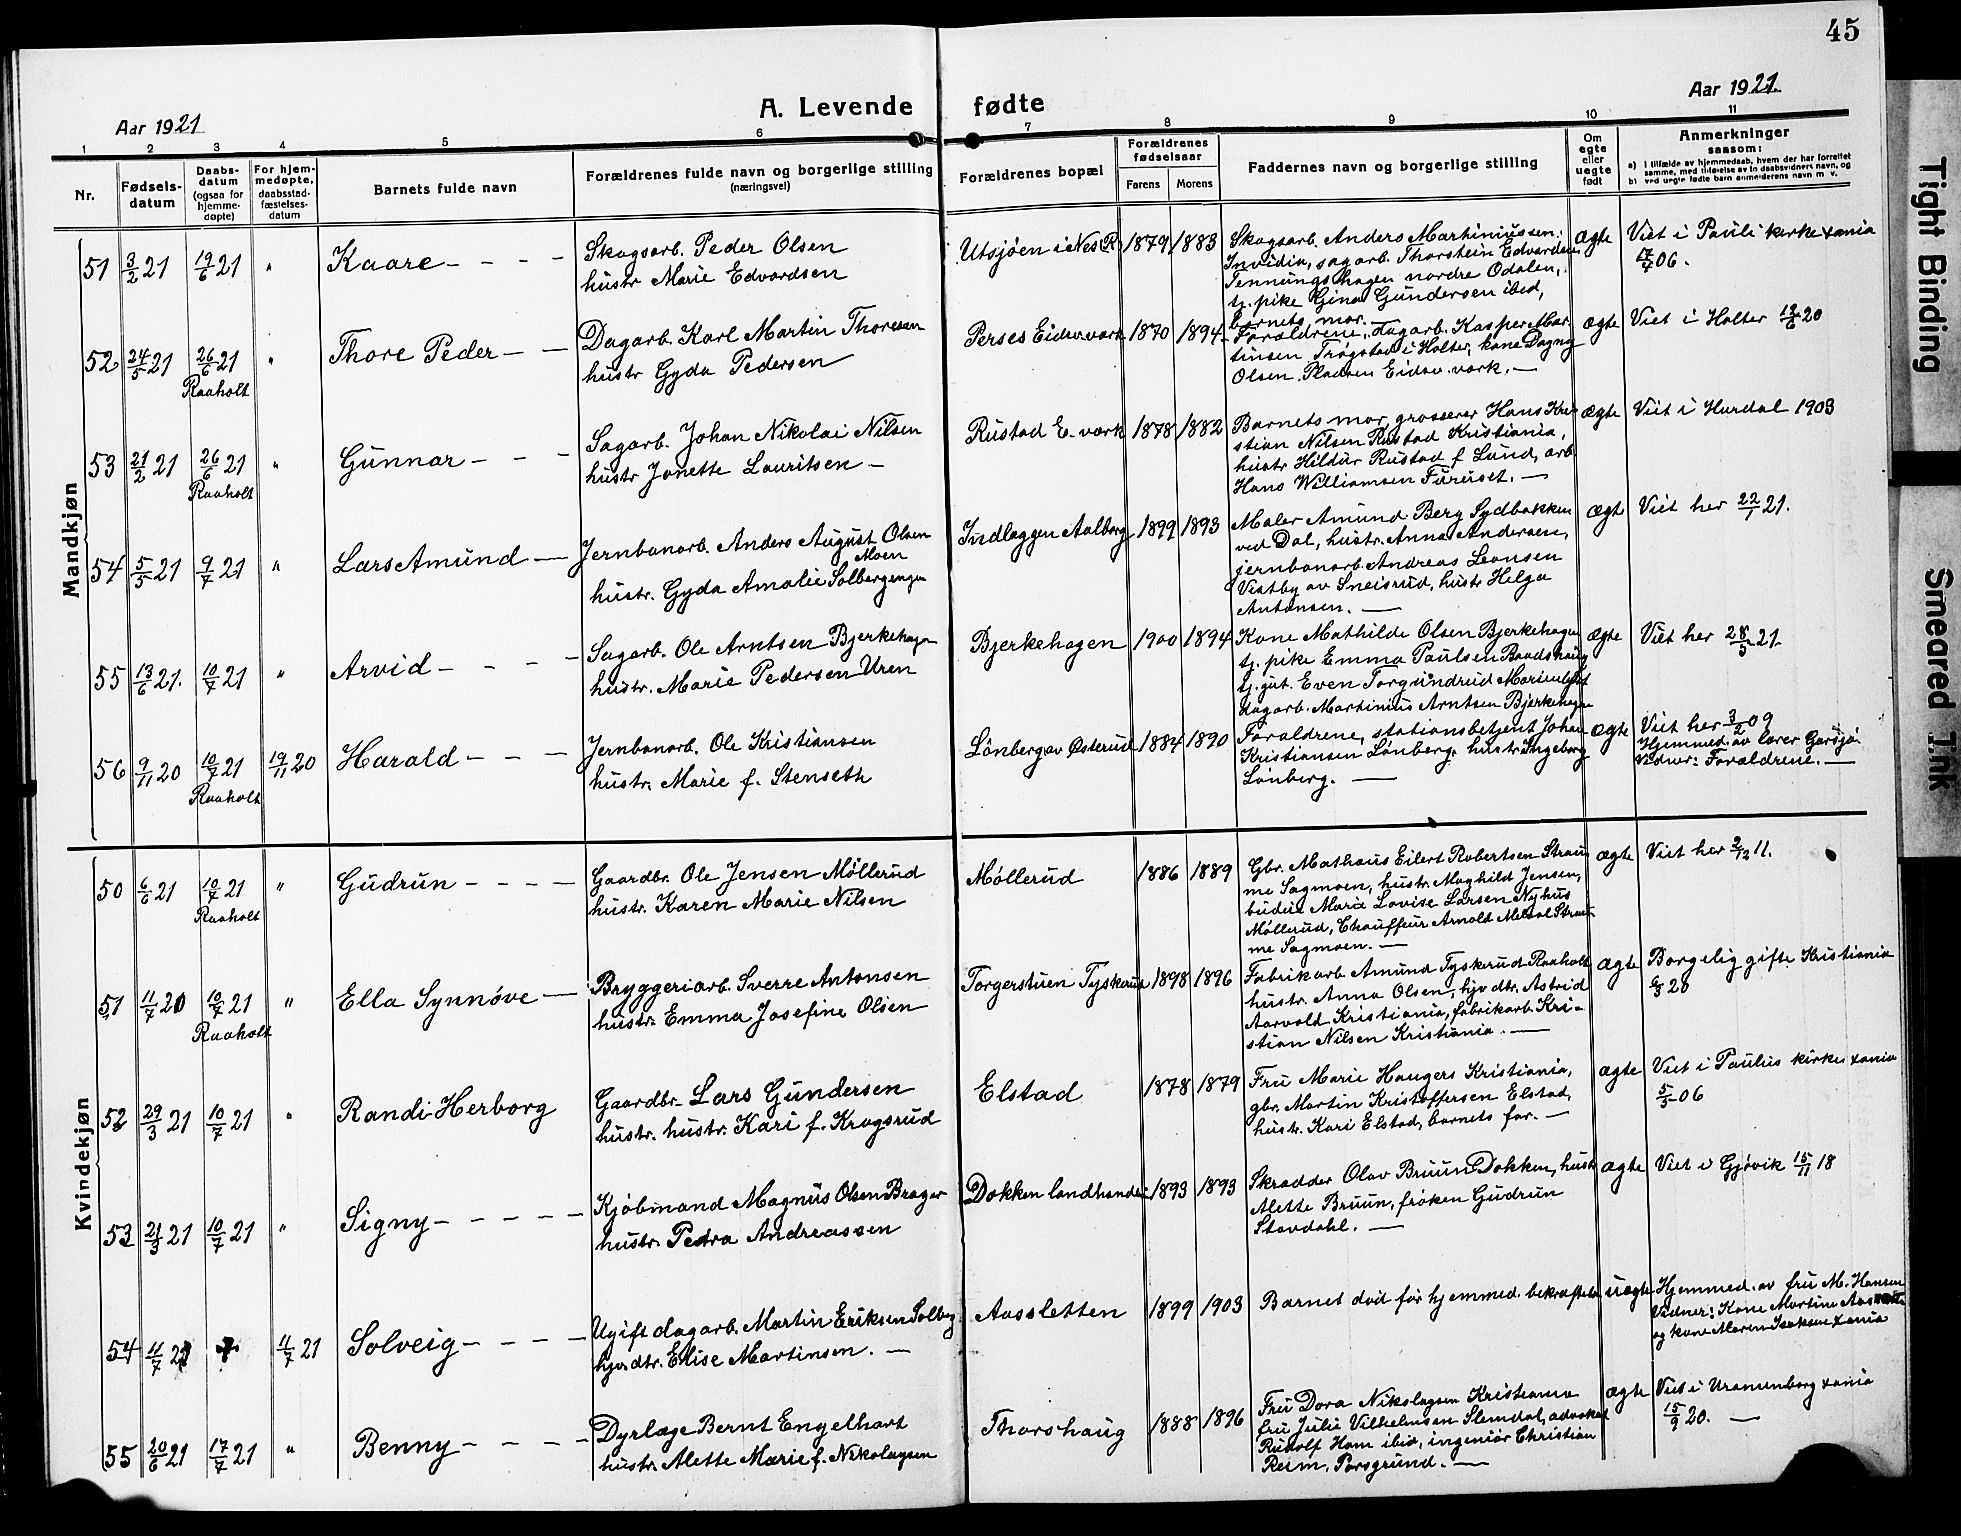 45
Aar 1921
A. Levende fødte
Aar 1921.
1 2 3 4 5 6 7 8 9 10 11
Nr.
Fødsels-
datum
Daabs-
datum
(ogsaa for
hjemme-
døpte)
For hjem-
medøpte,
daabsstad-
fæstelses-
datum
Barnets fulde navn
Forældrenes fulde navn og borgerlige stilling
(næringsvei)
Forældrenes bopæl
Forældrenes
fødselsaar
Farens Morens
Faddernes navn og borgerlige stilling
Om
egte
eller
uegte
født
Anmerkninger
saasom:
a) i tilfælde av hjemmedaab, hvem der har forrettet
samme, med tilføielse av to daabsvidners navn, og
b) ved uegte fødte barn anmelderens navn m. v.
Mandkjøn
51 3/2 21 19/6 21 " Kaare - - - -
Skogsarb. Peder Olsen
hustr Marie Edvardsen
Utsjøen i Nes R 1879 1883
Skogsarb. Anders Martiniussen
Invidia, sagarb. Thorstein Edvardsen
Tennungshagen nordre Odalen,
tj. pike Gina Gundersen ibid,
barnets mor.
ægte
Viet i Pauli kirke xania
17/4 06.
52 24/5 21 26/6 21 " Thore Peder - -
Raaholt
Dagarb. Karl Martin Thoresen
hustr Gyda Pedersen
Perses Eidsv. værk 1870 1894
Forældrene, dagarb. Kasper Mar-
tinsen Trøgstad i Holter, kone Dagny
Olsen Pladsen Eidsv. værk. -
ægte
Viet i Holter 12/6 20
53 21/2 21 26/6 21 " Gunnar - - -
Raaholt
Sagarb. Johan Nikolai Nilsen
hustr Jonette Lauritsen -
Rustad E. værk 1878 1882
Barnets mor, grosserer Hans Kri-
stian Nilsen Rustad Kristiania,
hustr Hildur Rustad f. Lund, arb.
Hans Williamsen Furuset. -
ægte
Viet i Hurdal 1903
54 5/5 21 9/7 21 " Lars Amund -
Jernbanarb. Anders August Olsen
Moen
hustr. Gyda Amalie Solbergengen
Indlæggen Aalborg 1899 1893
Maler Amund Berg Sydbakken
ved Dal, hustr. Anna Andersen,
jernbanarb. Andreas Leonsen
Vestby av Sneisrud, hustr Helga
Antonsen. -
ægte
Viet her 22/1 21.
55 13/6 21. 10/7 21 " Arvid - - - -
Sagarb. Ole Arntsen Bjerkehagen
hustr. Marie Pedersen Uren
Bjerkehagen 1900 1894
Kone Mathilde Olsen Bjerkehagen
tj. pike Emma Paulsen Baadshaug
tj. gut. Even Torgundrud Marienlyst
dagarb. Martinius Arntsen Bjerkehagen
ægte
Viet her 28/5 21.
56 9/11 20 10/7 21 19/11 20 Harald - - -
Raaholt
Jernbanarb. Ole Kristiansen
hustr. Marie f. Stenseth
Lönberg av Østerud 1884 1890
Foraldrene, stationsbetjent Johan
Kristiansen Lönberg, hustr Ingeborg
Lönberg. -
ægte
Viet her 3/2 09
Hjemmed. av lærer Garsjø
Vidner: Foraldrene. -
Kvindekjøn
50 6/6 21 10/7 21 " Gudrun - - - -
Raaholt
Gaardbr. Ole Jensen Møllerud
hustr. Karen Marie Nilsen
Møllerud 1886 1889
Gbr. Mathæus Eilert Robertsen Strau-
me Sagmoen, hustr. Maghild Jensen,
budeie Maria Lovise Larsen Nyhus
Møllerud, Chauffeur Arnold Straum-
me Sagmoen. -
ægte
Viet her 2/12 11.
51 11/7 20 10/7 21 " Ella Synnøve -
Raaholt
Bryggeriarb. Sverre Antonsen
hustr. Emma Josefine Olsen
Torgerstuen Tyskerud 1898 1896
Fabrikarb. Amund Tyskerud Raaholt
hustr. Anna Olsen, hjv. dtr. Astrid
Aarvold Kristiania, fabrikarb. Kri-
stian Nilsen Kristiania. -
ægte
Borgelig gift. Kristiania
6/3 20
52 29/3 21 10/7 21 " Randi Herborg
Gaardbr. Lars Gundersen
hustr. hustr. Kari f. Krogsrud
Elstad 1878 1879
Fru Marie Haugers Kristiania,
gbr. Martin Kristoffersen Elstad,
hustr. Kari Elstad, barnets far. -
ægte
Viet i Paulus kirke xania
5/5 06
53 21/3 21 10/7 21 " Signy - - - - -
Kjøbmand Magnus Olsen Brager
hustr. Petra Andreassen
Dokken landhandel 1893 1893
Skrædder Olav Bruun Dokken, hustr
Alette Bruun, frøken Gudrun
Stavdahl. -
ægte
Viet i Gjøvik 15/11 18
54 11/7 21 11/7 21 Solveig - - - -
Ugift dagarb. Martin Eriksen Solberg
hjv. dtr. Elise Martinsen. -
Aassletten 1899 1903
Barnet död før hjemmed. bekræftelse
uægte
Hjemmed. av fru M. Hansen
Vidner: Kone Martine
og kone Maren Isaksen xania
55 20/6 21 17/7 21 " Benny - - - -
Dyrlæge Bernt Engelhart
hustr. Alette Marie f. Nikolaysen
Thorshaug 1888 1896
Fru Dora Nikolaysen Kristiania
fru Julie Vilhelmsen Slemdal, advokat
Rudolf Ham ibid, ingeniør Christian
Reim, Porsgrund. -
ægte
Viet i Uranienborg xania
15/9 20. -
Tight Binding
Smeared Ink